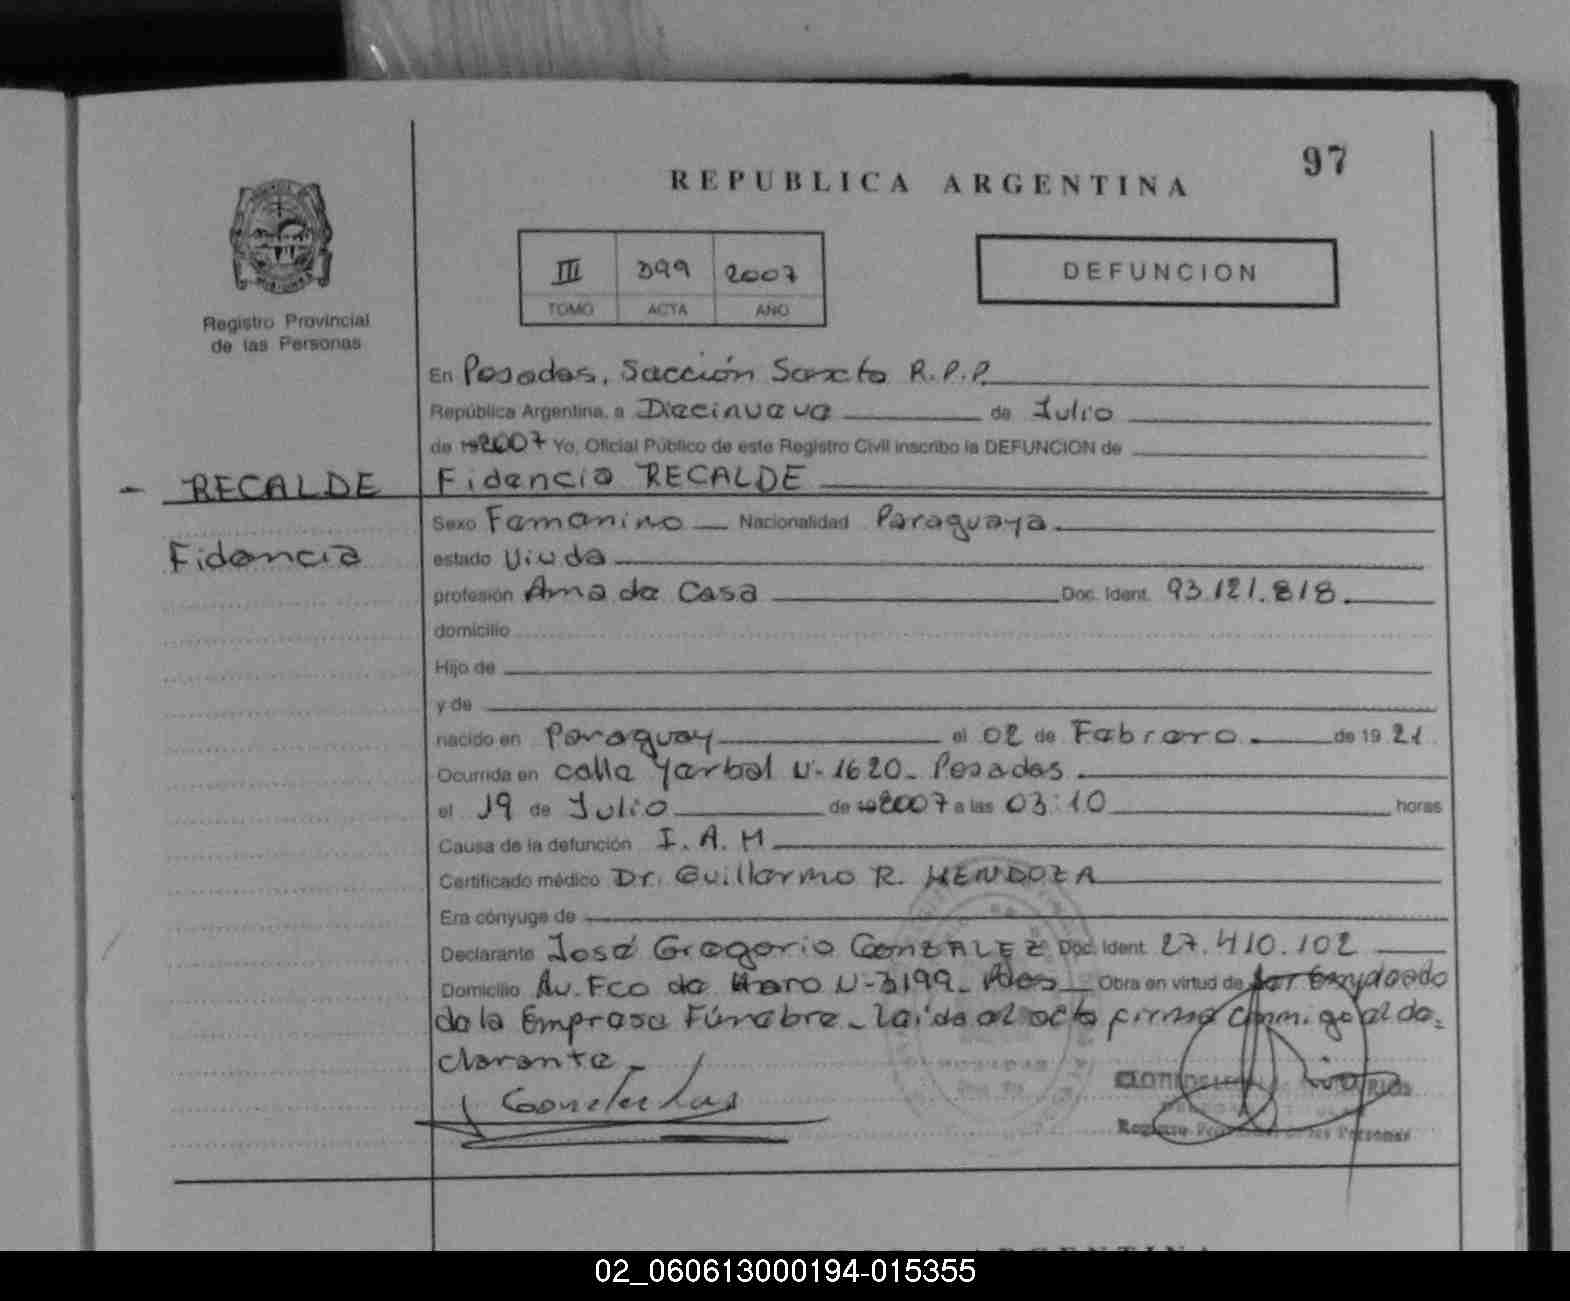 97
REPUBLICA ARGENTINA
III 399 2007
TOMO ACTA AÑO
DEFUNCION
Registro Provincial
de las Personas
En Posadas, Sección Sexta R.P.P.
República Argentina, a Diecinueve de Julio
de 2007 Yo, Oficial Público de este Registro Civil inscribo la DEFUNCION de
RECALDE
Fidencia RECALDE
Sexo Femenino Nacionalidad Paraguaya
Fidencia
estado Viuda
profesión Ama de Casa Doc. Ident. 93.121.818.
domicilio
Hijo de
y de
nacido en Paraguay el 02 de Febrero de 19 21
Ocurrida en calle Yerbal N- 1620- Posadas
el 19 de Julio de 2007 a las 03:10 horas
Causa de la defunción I.A.M
Certificado médico Dr. Guillermo R. MENDOZA
Era cónyuge de
Declarante José Gregorio GONZALEZ Doc. Ident. 27.410.102
Domicilio Av. Fco de Haro N-3199- Pdas Obra en virtud de ser Empleado
de la Empresa Fúnebre- leída el acta firma conmigo el de=
clarante-
Registro Provincial de las Personas
ARGENTINA
02_060613000194-015355